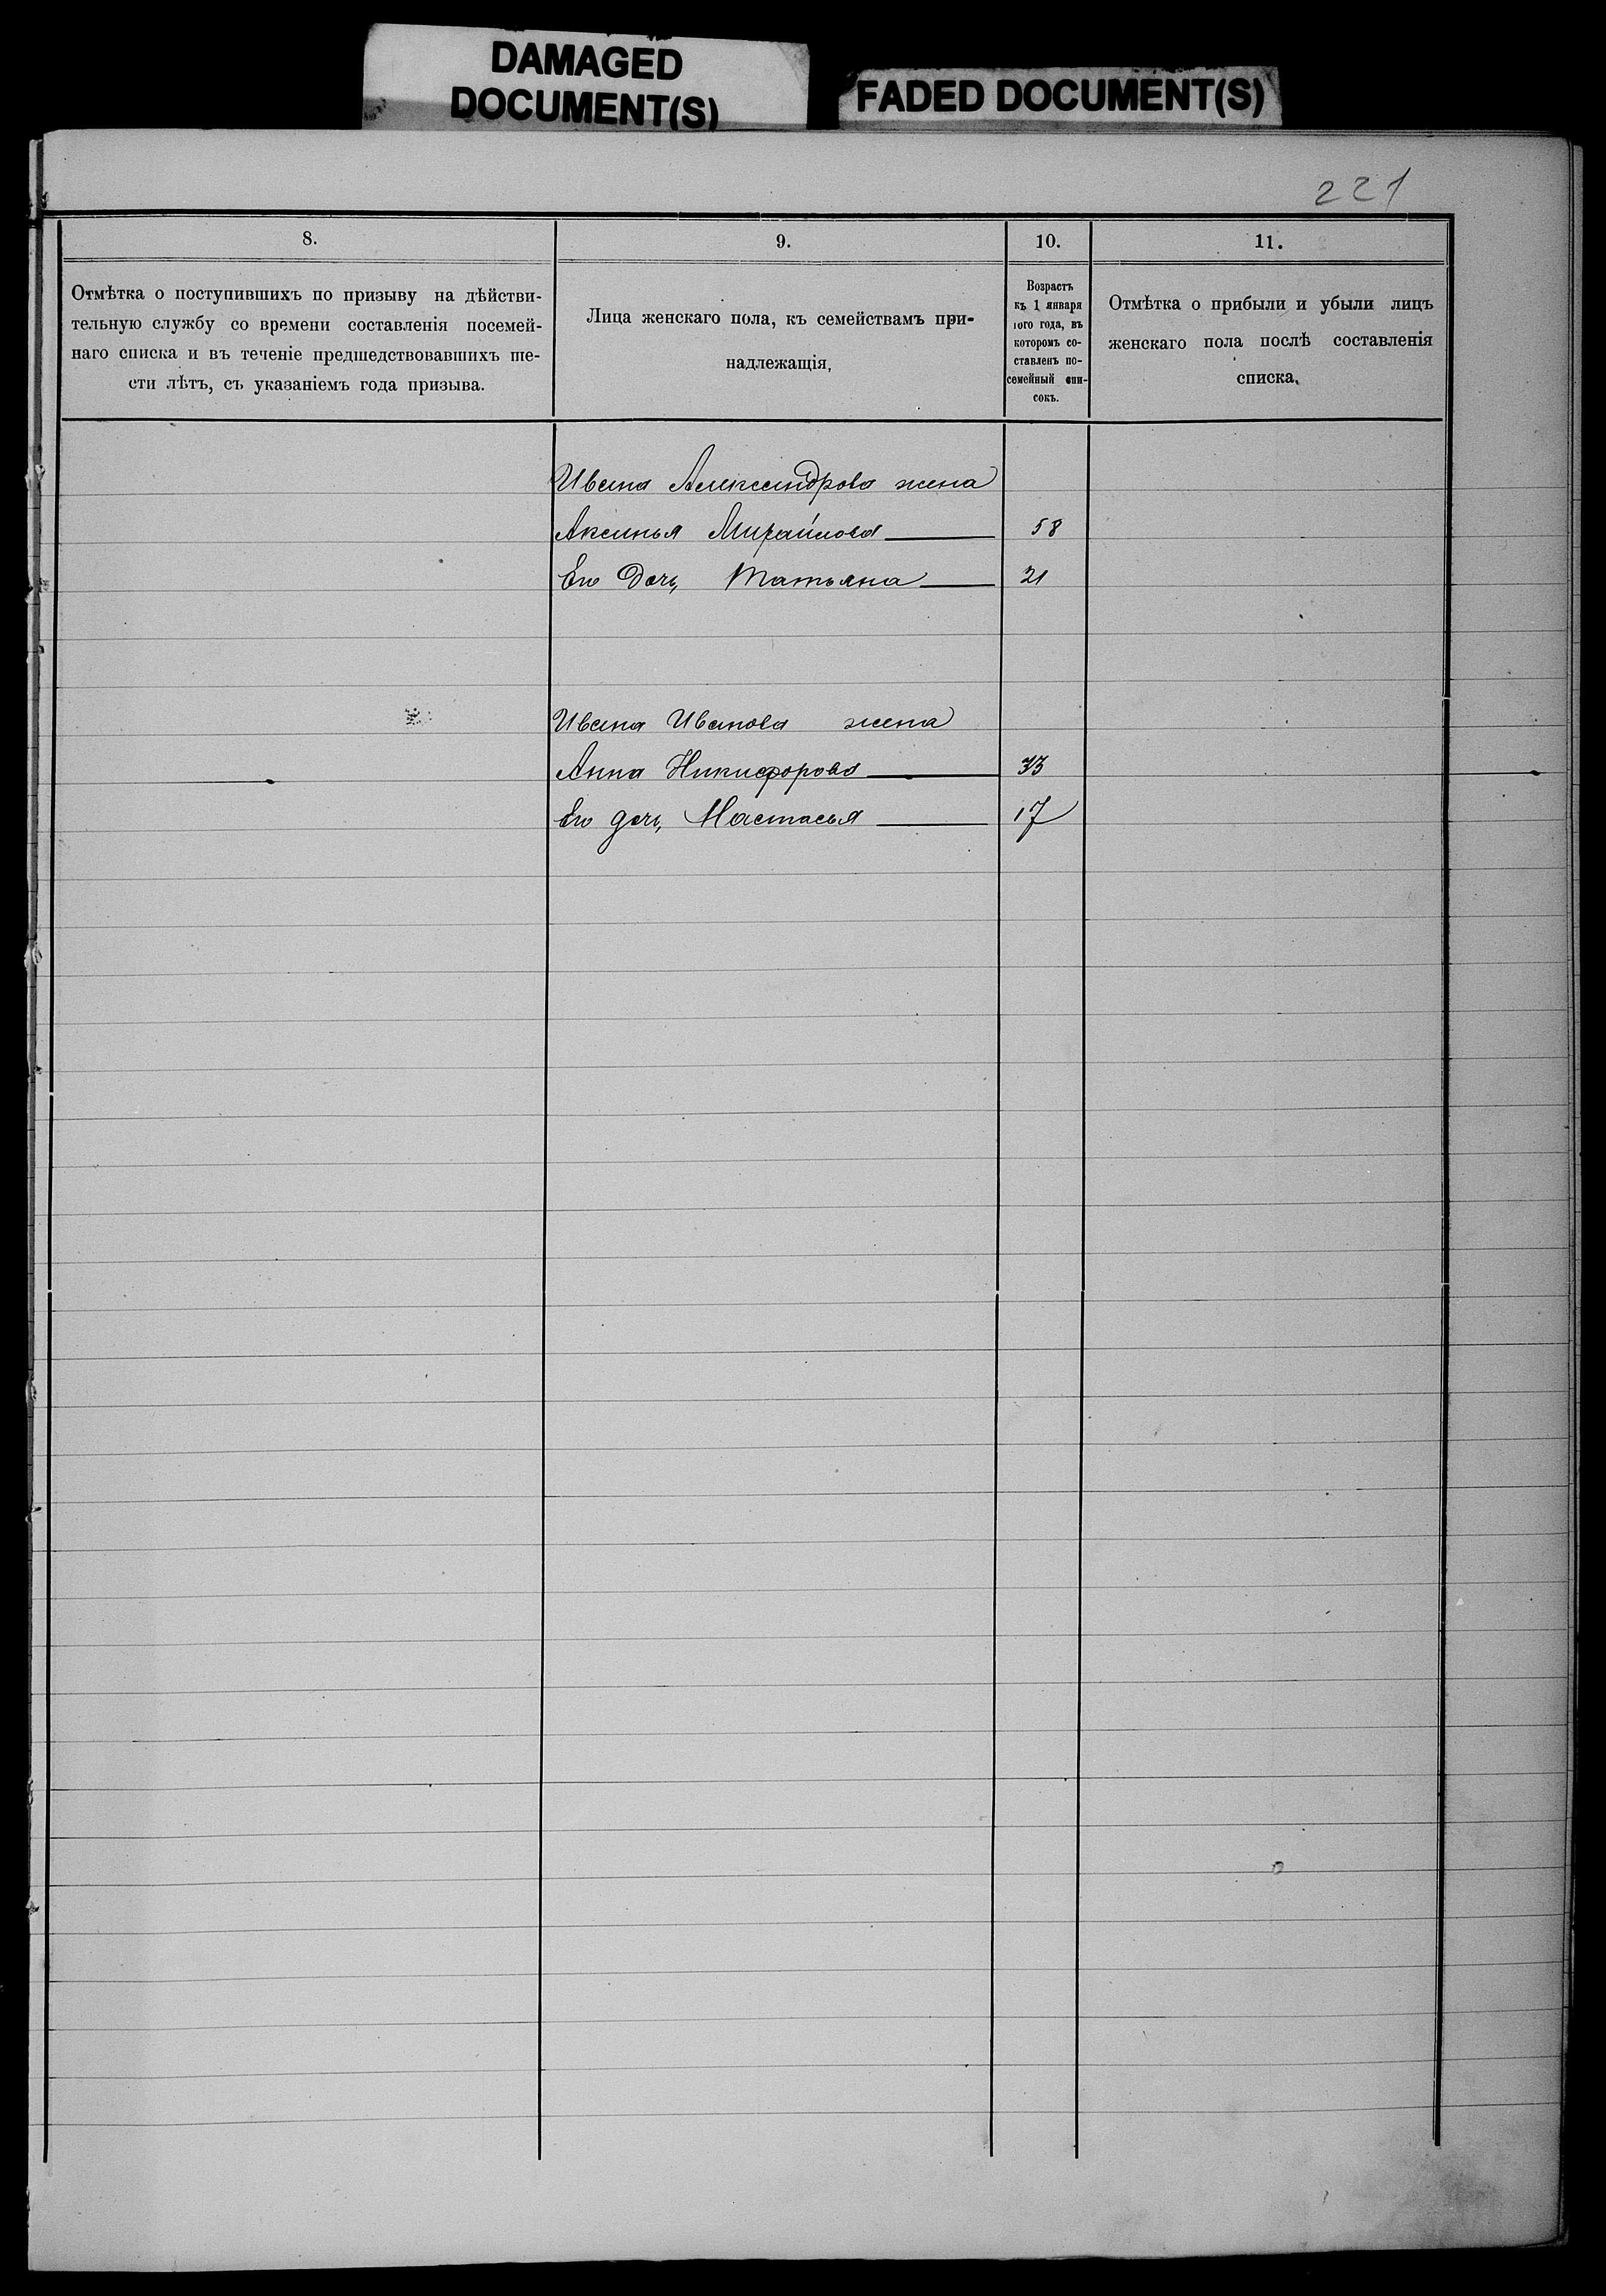 DAMAGED
DOCUMENT(S)
FADED DOCUMENT(S)
221
8.
9.
10.
11.
Отмѣтка о поступившихъ по призыву на дѣйстви-
тельную службу со времени составленія посемей-
наго списка и въ теченіе предшедствовавшихъ ше-
сти лѣтъ, съ указаніемъ года призыва.
Лица женскаго пола, къ семействамъ при-
надлежащія,
Возрастъ
къ 1 января
того года, въ
которомъ со-
ставленъ по-
семейный спи-
сокъ.
Отмѣтка о прибыли и убыли лицъ
женскаго пола послѣ составленія
списка.
Ивана Александрова жена
Аксинья Михайлова 58
Его Дочь, Татьяна 21
Ивана Иванова жена
Анна Никифорова 33
Его дочь, Настасья 17